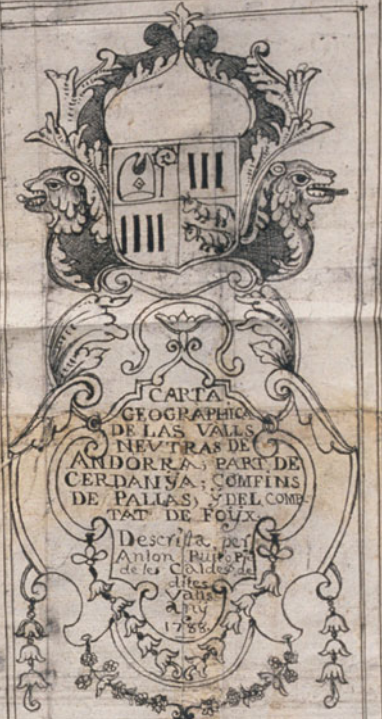 CARTA
GEOGRAPHICA
DE LAS VALLS
NEVTRAS DE
ANDORRA; PART DE
CERDANYA; COMFINS
DE PALLAS, Y DEL COMP-
TAT DE FOÜX.
Descritta per
Anton
de les Caldes de
dites
Valls
any
1788